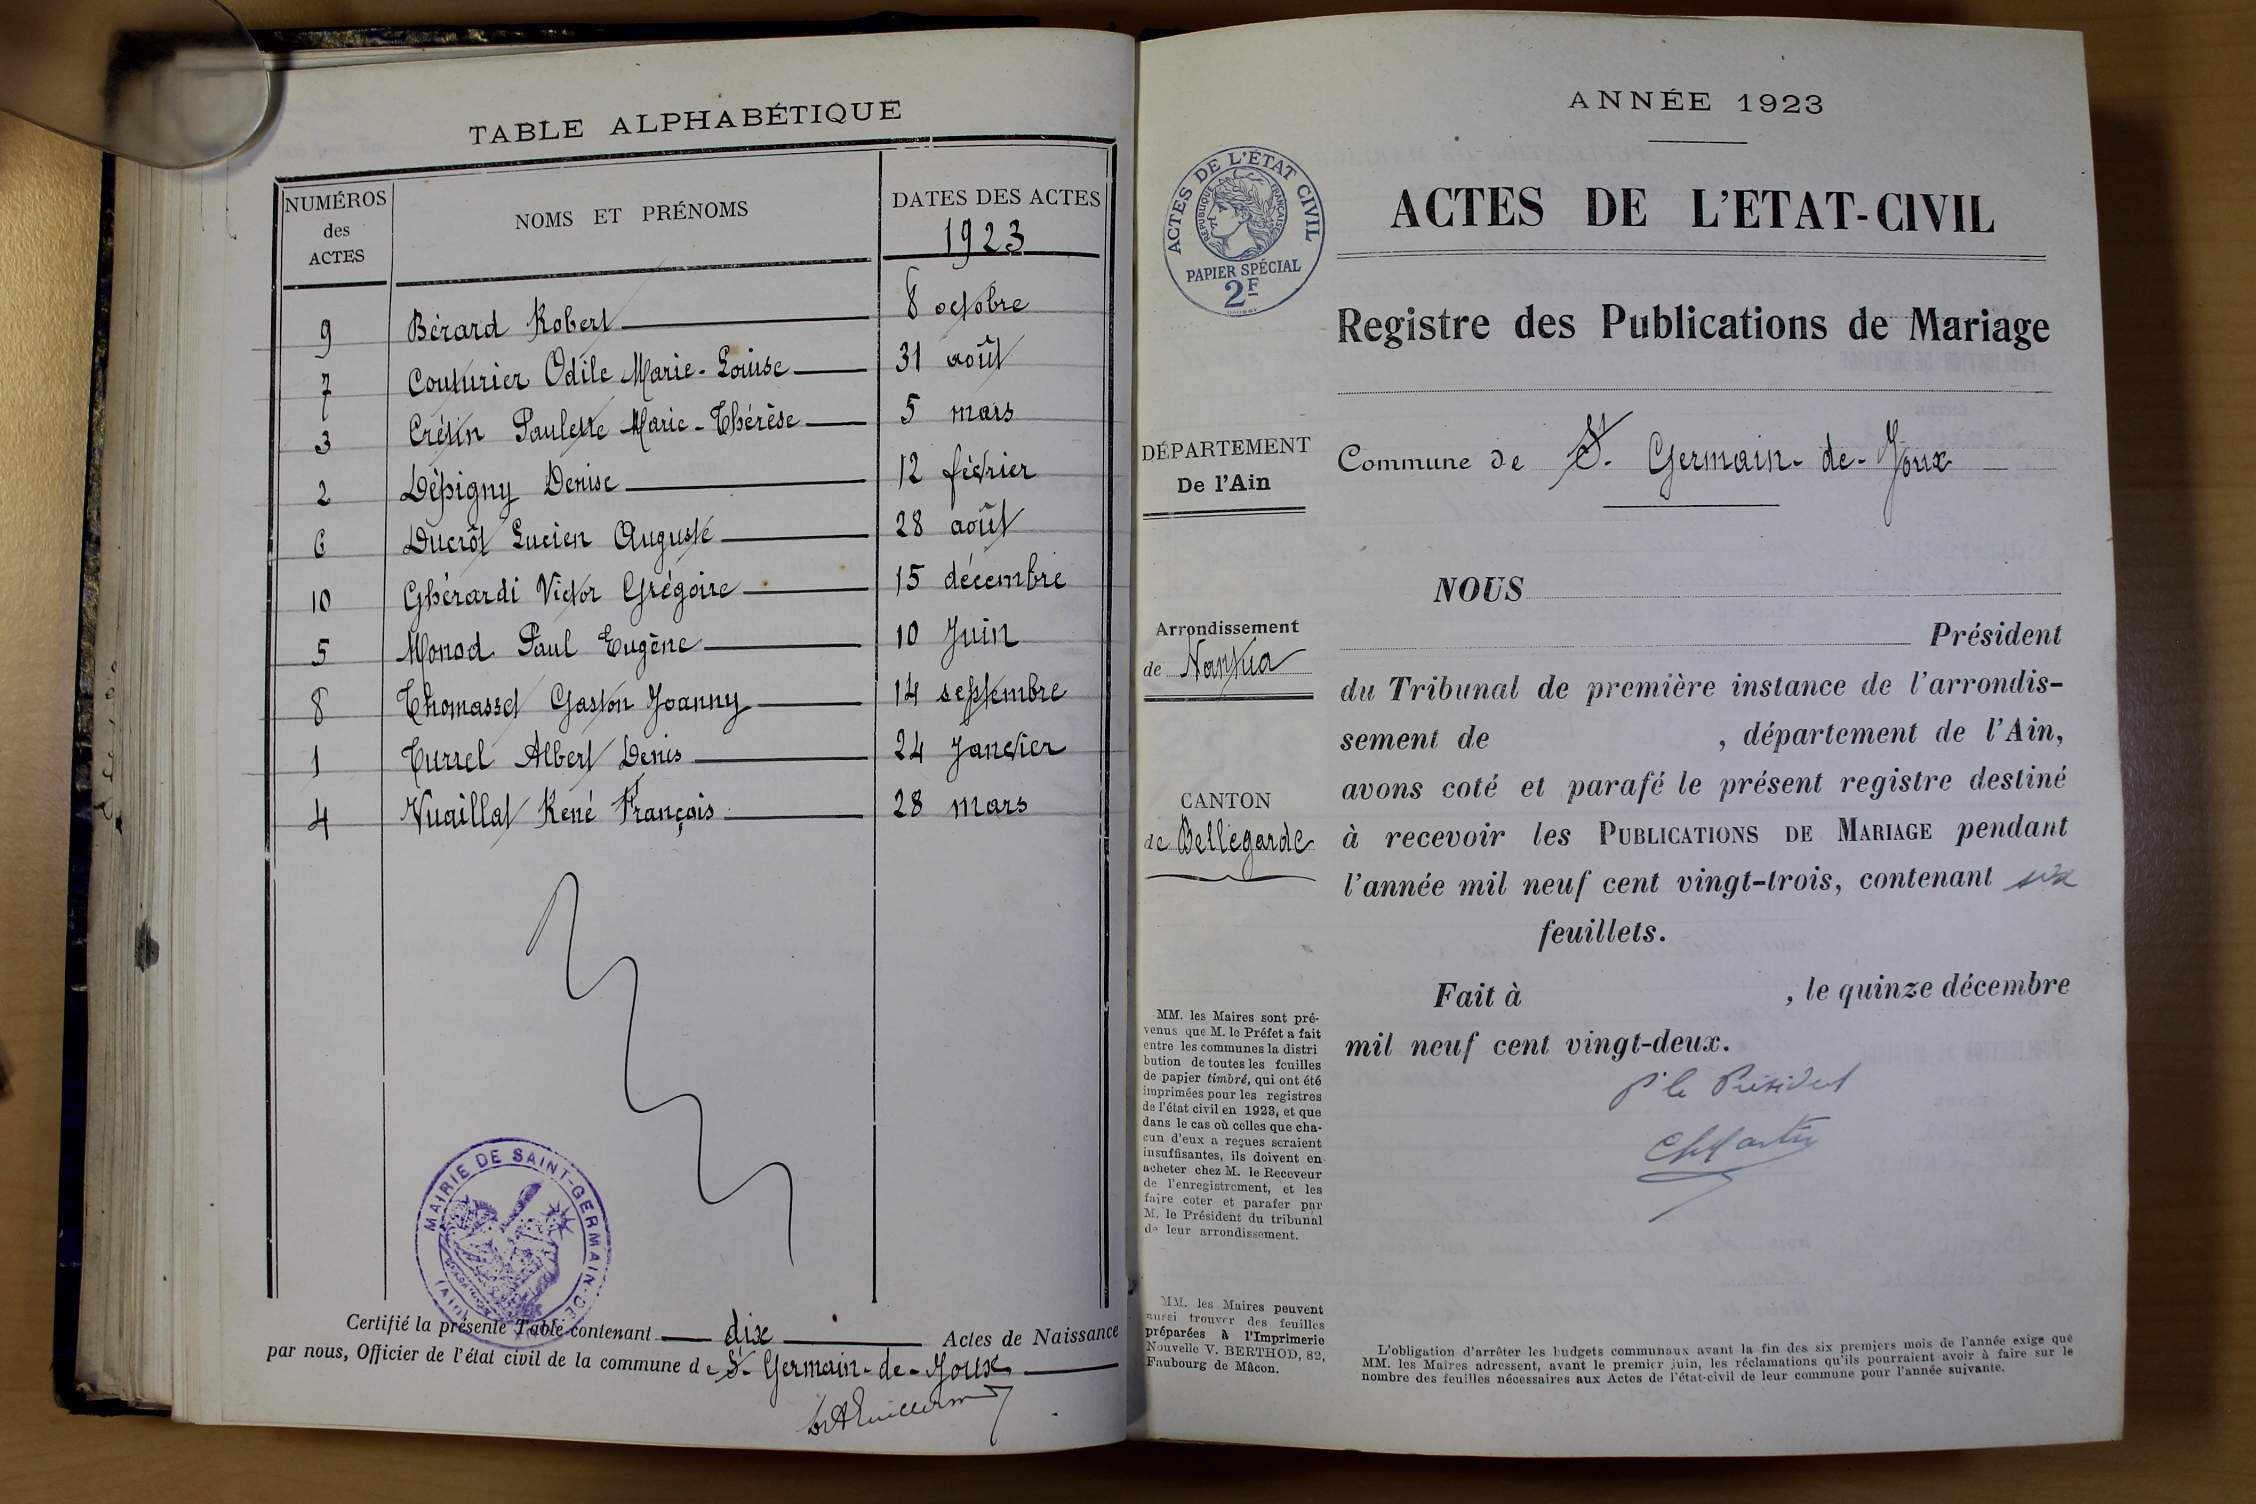 TABLE ALPHABÉTIQUE
NUMÉROS
des
ACTES
NOMS ET PRÉNOMS
DATES DES ACTES
1923
9 Bérard Robert 8 octobre
7 Couturier Odile Marie-Louise 31 août
3 Crétin Paulette Marie-Thérèse 5 mars
2 Dépigny Denise 12 février
6 Ducrôt Lucien Auguste 28 août
10 Ghérardi Victor Grégoire 15 décembre
5 Monod Paul Eugène 10 Juin
8 Thomasset Gaston Joanny 14 septembre
1 Turrel Albert Denis 24 Janvier
4 Vuaillat René François 28 mars
MAIRIE DE SAINT-GERMAIN-DE
(AIN)
Certifié la présente Table contenant dix Actes de Naissance
par nous, Officier de l'état civil de la commune de St Germain-de-Joux
ANNÉE 1923
ACTES DE L'ETAT-CIVIL
ACTES DE L'ÉTAT CIVIL
RÉPUBLIQUE FRANÇAISE
PAPIER SPÉCIAL
2F
Registre des Publications de Mariage
DÉPARTEMENT
De l'Ain
Commune de St. Germain-de-Joux
Arrondissement
de Nantua
CANTON
de Bellegarde
NOUS
Président
du Tribunal de première instance de l'arrondis-
sement de , département de l'Ain,
avons coté et parafé le présent registre destiné
à recevoir les PUBLICATIONS DE MARIAGE pendant
l'année mil neuf cent vingt-trois, contenant six
feuillets.
Fait à , le quinze décembre
mil neuf cent vingt-deux.
p. le Président
MM. les Maires sont pré-
venus que M. le Préfet a fait
entre les communes la distri
bution de toutes les feuilles
de papier timbré, qui ont été
imprimées pour les registres
de l'état civil en 1923, et que
dans le cas où celles que cha-
cun d'eux a reçues seraient
insuffisantes, ils doivent en
acheter chez M. le Receveur
de l'enregistrement, et les
faire coter et parafer par
M. le Président du tribunal
de leur arrondissement.
MM. les Maires peuvent
aussi trouver des feuilles
préparées à l'Imprimerie
Nouvelle V. BERTHOD, 82,
Faubourg de Mâcon.
L'obligation d'arrêter les budgets communaux avant la fin des six premiers mois de l'année exige que
MM. les Maires adressent, avant le premier juin, les réclamations qu'ils pourraient avoir à faire sur le
nombre des feuilles nécessaires aux Actes de l'état-civil de leur commune pour l'année suivante.